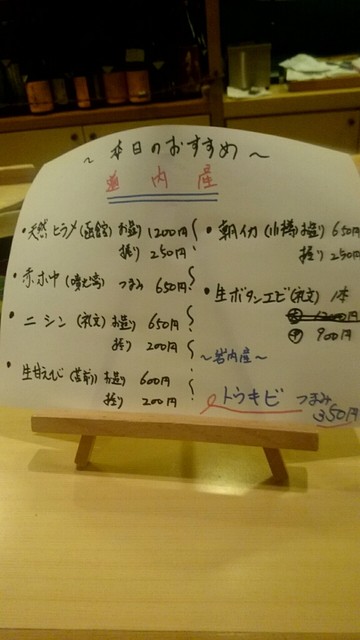 ~ 本日のおすすめ ~
道内産
・天然ヒラメ(函館) お造り 1200円
握り 250円
・赤ホヤ つまみ 650円
・ニシン(礼文) お造り 650円
握り 200円
・生甘えび(苫前) お造り 600円
握り 200円
・朝イカ(小樽) お造り 650円
握り 250円
・生ボタンエビ(礼文) 1本
大 1200円
中 900円
~岩内産~
トウキビ つまみ
350円